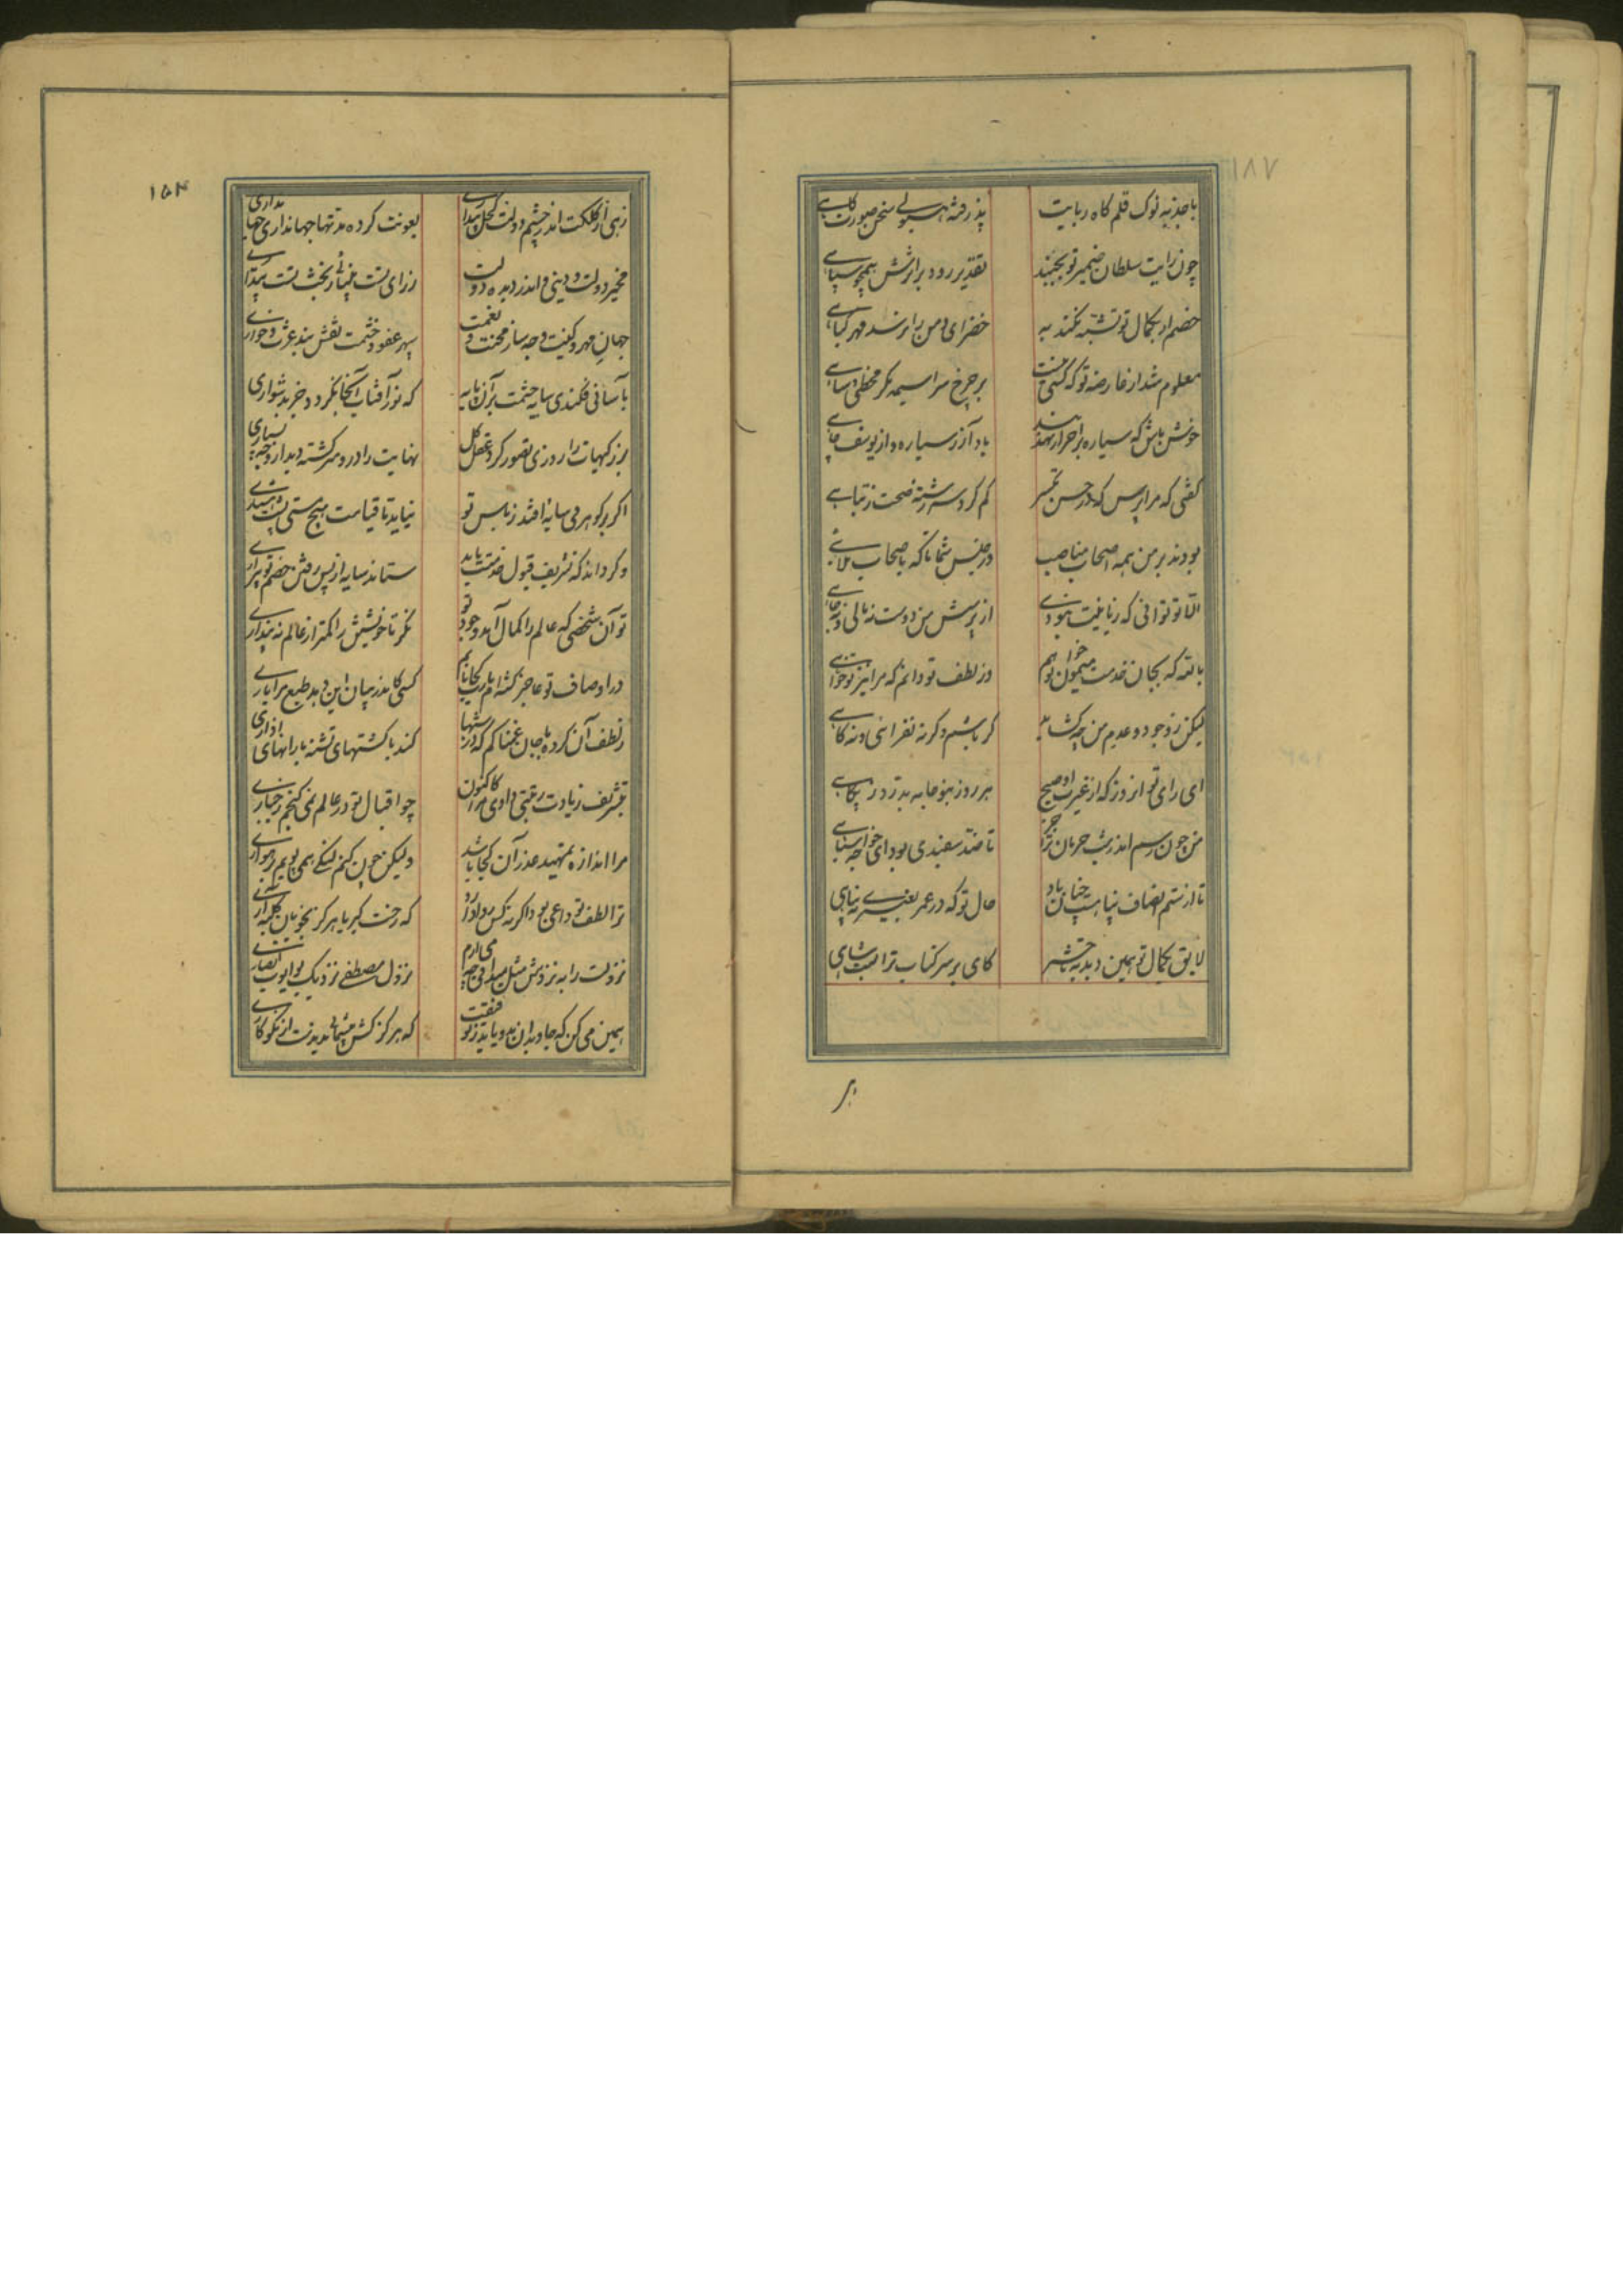 ۱۸۷
با جذبه نوک قلم کاه ربایت
پذرفته هیولی سخن صورت کاهی
چون رایت سلطان ضمیر تو بجنبد
تقدیر رود بر اثرش همچو سپاهی
خصم ار بکمال تو تشبه نکند به
خضرای دمن را نرسد مهر گیاهی
معلوم شد از عارضه تو که کسی نیست
بر چرخ سراسیمه مگر مخطی و ساهی
خوش باش که سیاره بر احرار نهد بند
یاد آر ز سیاره و از یوسف چاهی
گفتی که مرا پرس که در حبس
گم کرد سر رشته صحت ز تباهی
بودند بر من همه اصحاب مناصب
در حبس شما تا که باصحاب ملاهی
الا تو توانی که زبانیت نبودی
از پرسش من دوست نه مالی و نه جاهی
بالله که بجان خدمت میمون تو خواهم
وز لطف تو دانم که مرا نیز تو خواهی
لیکن ز وجود و عدم من چه گشاید
گر باشم و گر نه نفزائی و نه کاهی
ای رای تو آن روز که از غیرت او صبح
هر روز بنو جامه بدرد ز پگاهی
من چون رسم اندر شب حرمان تو آخر
تا ضد سفیدی بود ای خواجه سیاهی
تا از ستم انصاف پناهست چنان باد
حال تو که در عمر بغیری نپناهی
لایق بکمال تو همین دید
کای بر سر کتاب ترا منصب شاهی
بر
۱۵۴
زهی از کلکت اندر چشم دولت کحل بیداری
بعونت کرده مدتها جهانداری جهانداری
مخیر دولت و دینی و اندر دیده دولت
ز رای تست بینائی ز بخت تست بیداری
جهان مهر و کینت وجه ساز محنت و نعمت
سپهر عفو و خشمت نقش بند عزت و خواری
بآسانی فکندی سایه حشمت بر آن پایه
که نور آفتاب آنجا نگردد جز بدشواری
بزرگیهات را روزی تصور کرد عقل کل
نهایت را در او سرگشته دید از وجه بسیاری
اگر بر گوهر می سایه افتد ز باس تو
نیاید تا قیامت هیچ مستی پیش هشیاری
وگر داند که تشریف قبول خدمتت یابد
ستاند سایه از پس رفتن خصم تو بیزاری
تو آن شخصی که عالم را کمال آمد وجود تو
نگر تا خویشتن را کمتر از عالم نه پنداری
در اوصاف تو عاجز گشته ام یارب کجا یابم
کسی کاندر بیان این دهد طبع مرا یاری
ز لطف آن کرده با جان غمناکم که در شبها
کند با کشتهای تشنه بارانهای آذاری
بتشریف زیادت رغبتی دادی مرا کاکنون
چو اقبال تو در عالم نمی گنجم ز جباری
مرا اندازه تمهید عذر آن کجا باشد
ولیکن چون کنم لنگی همی پویم برهواری
ترا لطف تو داعی بود اگر نه کس روا دارد
که رخت کبریا هرگز بخود بار گلیم آری
نزولت را بنزد خویش مثلی میدانی چه می آرم
نزول مصطفی نزدیک بوایوب انصاری
همین می کن که جاویدان مدد یابد ز توفیقت
که هرگز کس پشیمانی ندیدست از نکوکاری